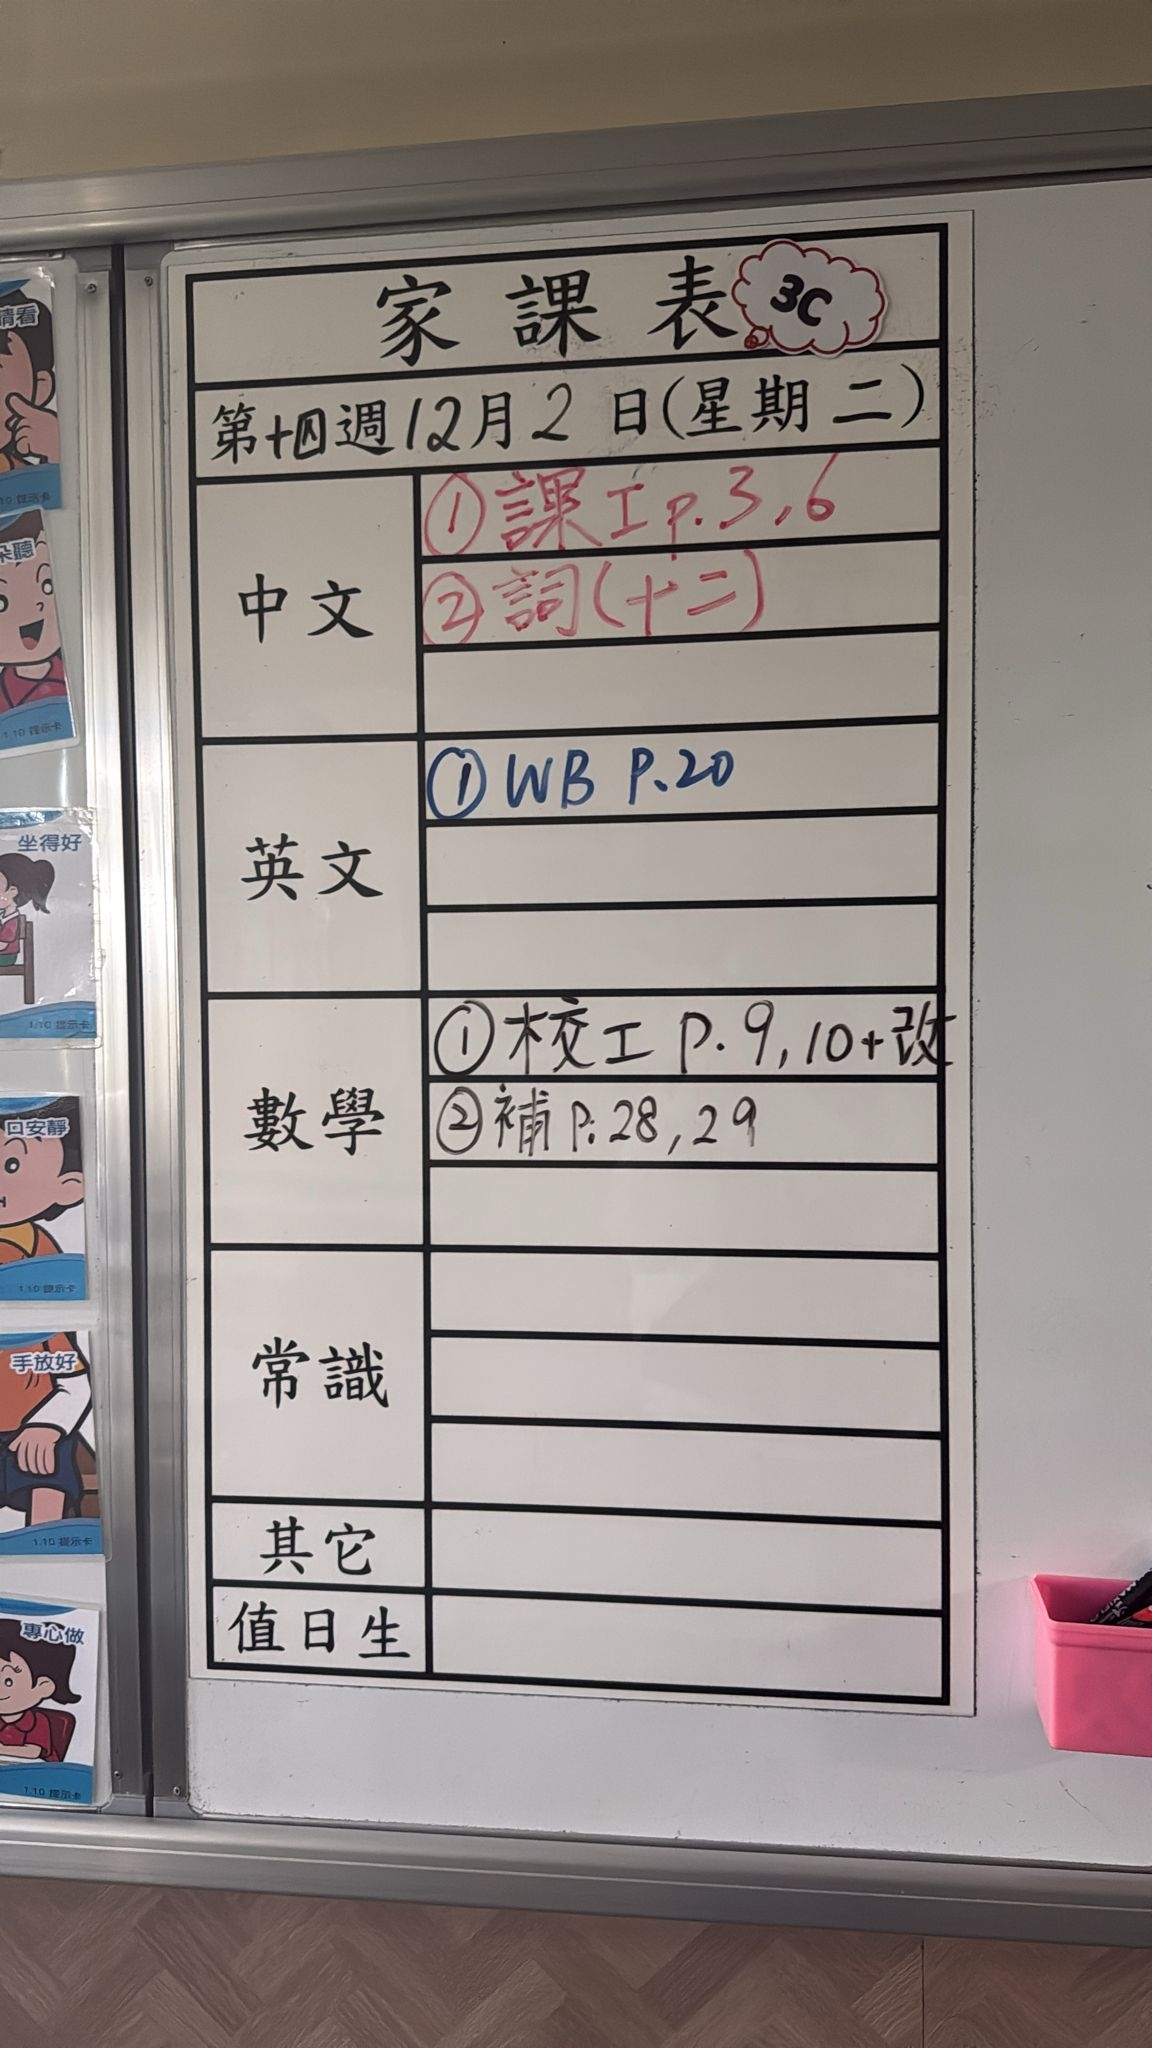 家課表 3C
第十四週12月2日(星期二)
中文
①課工p.3,6
②詞(十二)
英文
①WB P.20
數學
①校工P.9,10+改
②補P.28,29
常識
其它
值日生
請看
1.10 提示卡
朵聽
1.10 提示卡
坐得好
1.10 提示卡
口安靜
1.10 提示卡
手放好
1.10 提示卡
專心做
1.10 提示卡